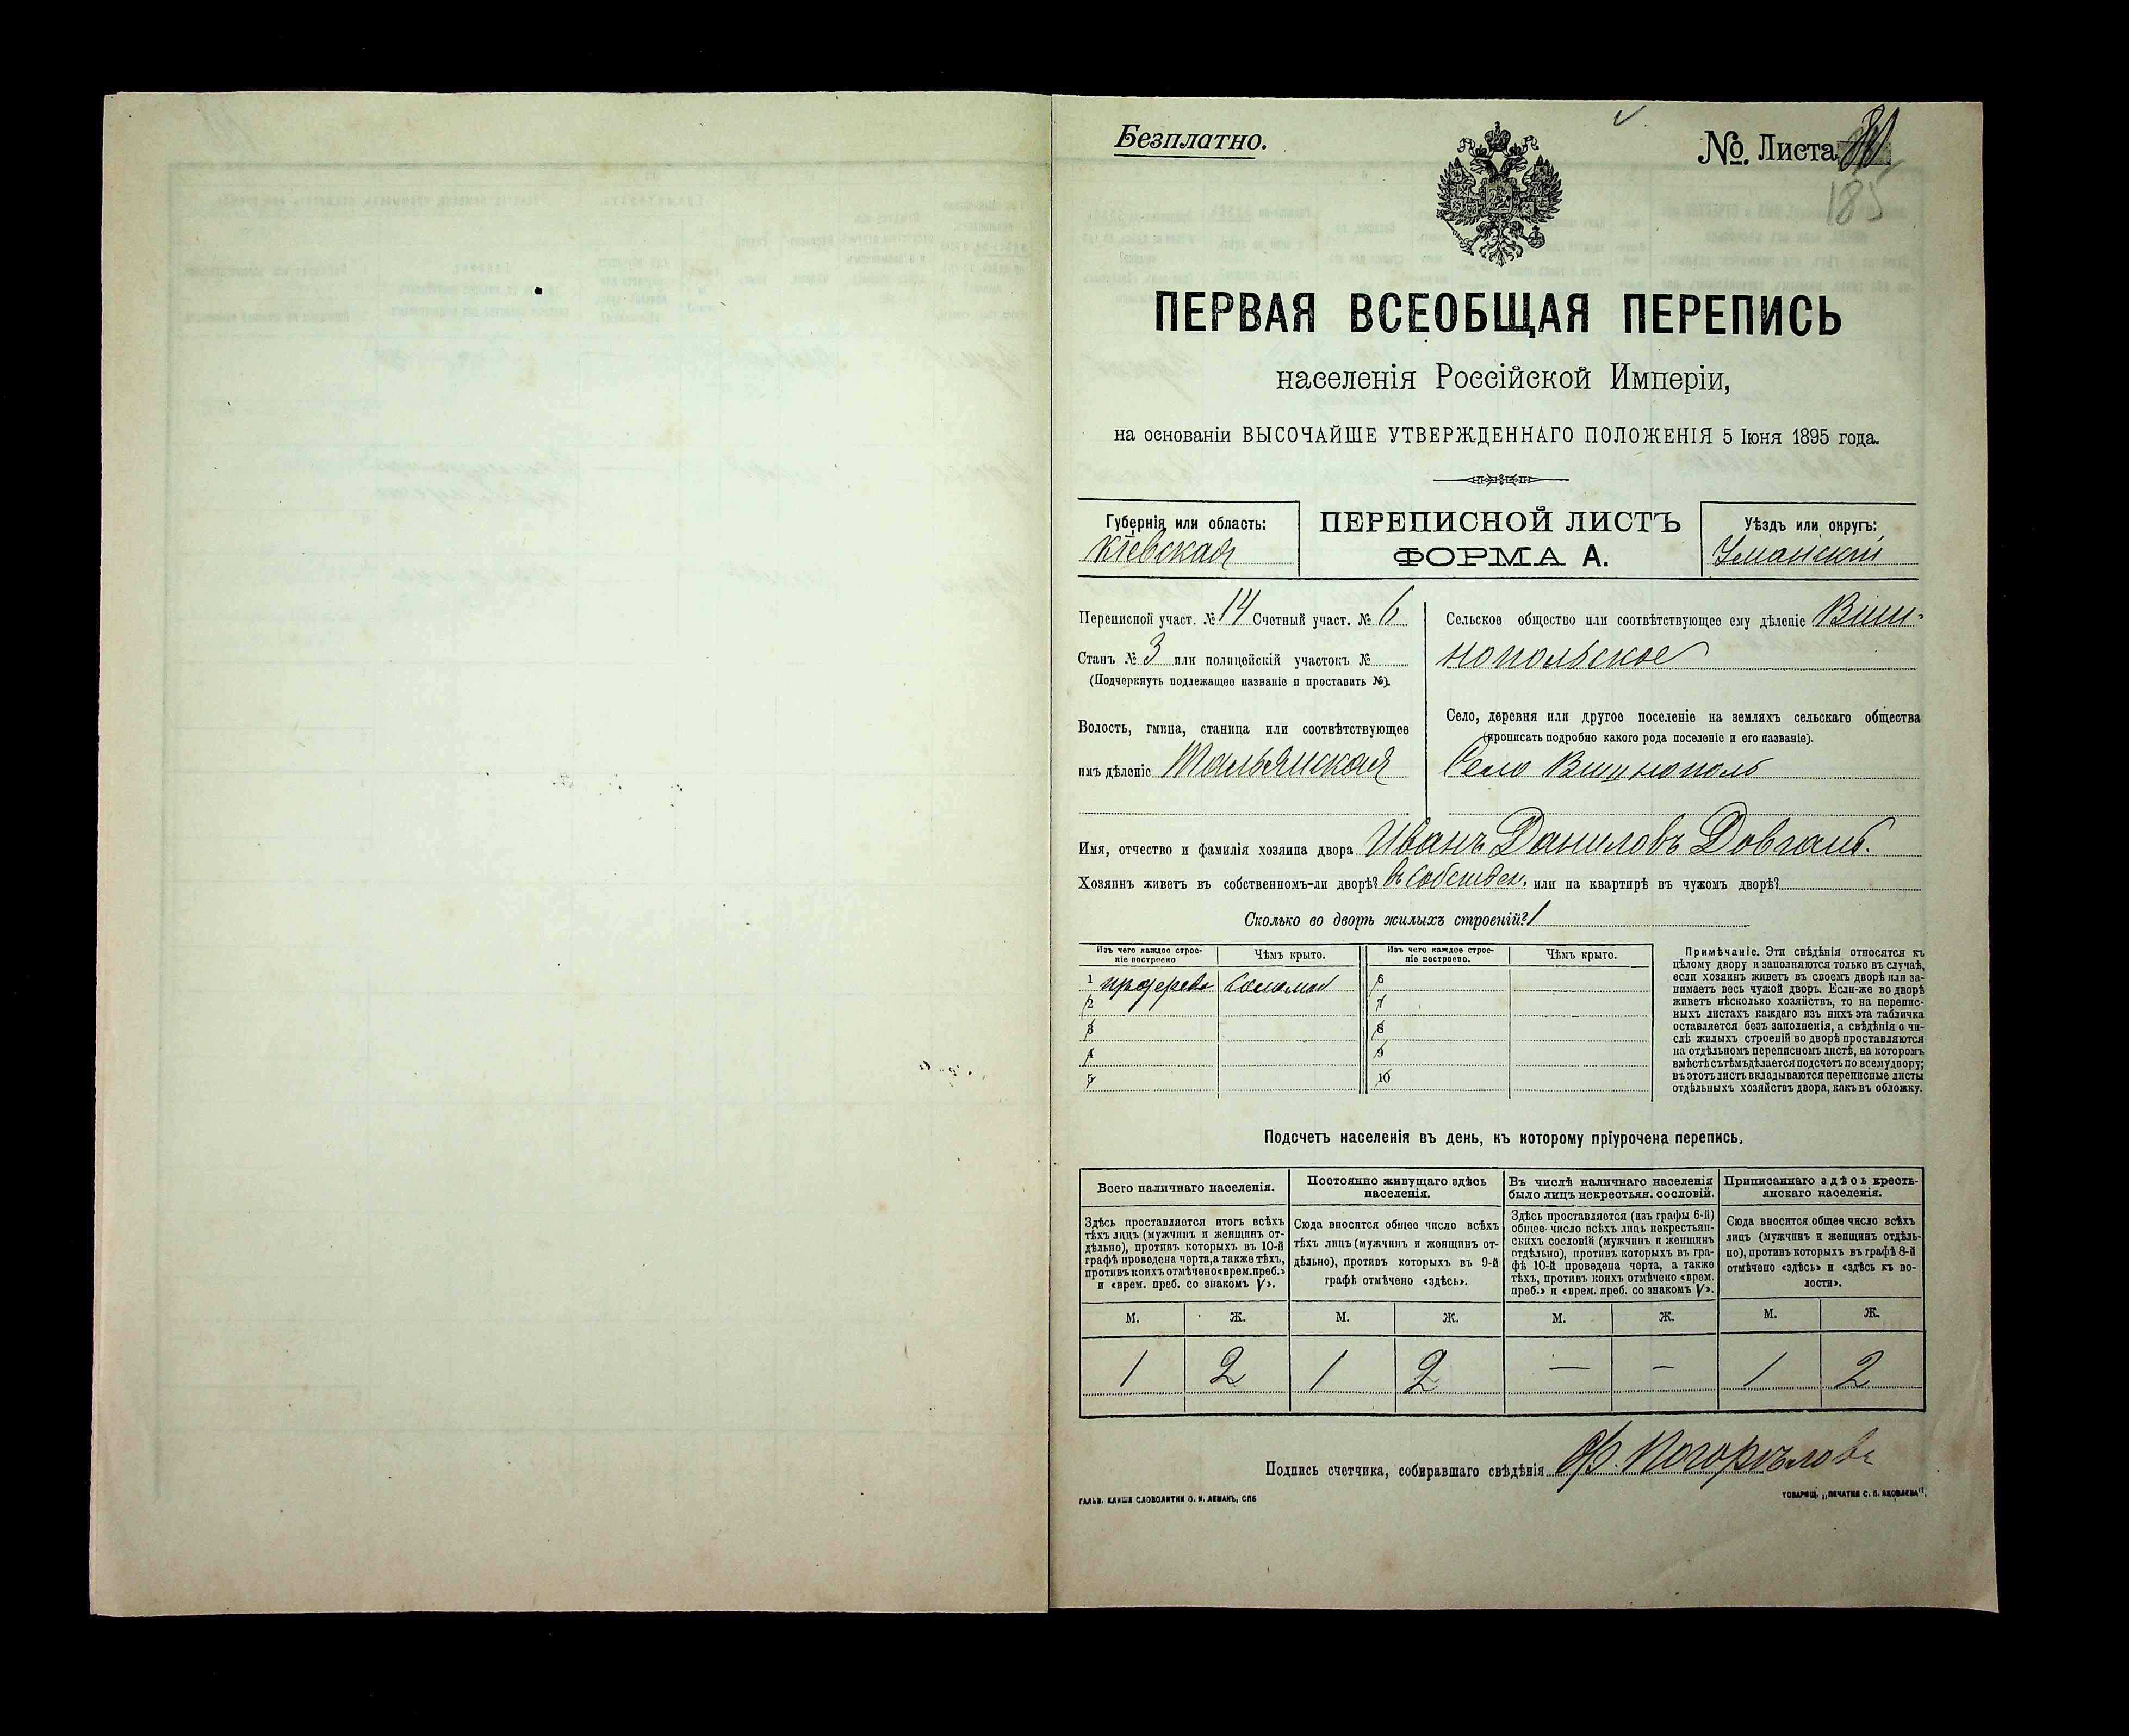 Безплатно.
№. Листа
185
ПЕРВАЯ ВСЕОБЩАЯ ПЕРЕПИСЬ
населенія Россійской Имперіи,
на основаніи ВЫСОЧАЙШЕ УТВЕРЖДЕННАГО ПОЛОЖЕНІЯ 5 Іюня 1895 года.
Губернія или область:
Кіевская
ПЕРЕПИСНОЙ ЛИСТЪ
ФОРМА А.
Уѣздъ или округъ:
Уманскій
Переписной участ. № 14 Счетный участ. № 6
Станъ № 3 или полицейскій участокъ №
(Подчеркнуть подлежащее названіе и проставить №).
Волость, гмина, станица или соотвѣтствующее
имъ дѣленіе Тальянская
Сельское общество или соотвѣтствующее ему дѣленіе Виш-
нопольское
Село, деревня или другое поселеніе на земляхъ сельскаго общества
(прописать подробно какого рода поселеніе и его названіе).
Село Вишнополь
Имя, отчество и фамилія хозяина двора Иванъ Даниловъ Довгань.
Хозяинъ живетъ въ собственномъ-ли дворѣ? въ собствен. или на квартирѣ въ чужомъ дворѣ?
Сколько во дворѣ жилыхъ строеній? 1
Изъ чего каждое строе-
ніе построено
Чѣмъ крыто.
Изъ чего каждое строе-
ніе построено.
Чѣмъ крыто.
1 изъ дерева соломой
2
3
4
5
6
7
8
9
10
Примѣчаніе. Эти свѣдѣнія относятся къ
цѣлому двору и заполняются только въ случаѣ,
если хозяинъ живетъ въ своемъ дворѣ или за-
нимаетъ весь чужой дворъ. Если-же во дворѣ
живетъ нѣсколько хозяйствъ, то на перепис-
ныхъ листахъ каждаго изъ нихъ эта табличка
оставляется безъ заполненія, а свѣдѣнія о чи-
слѣ жилыхъ строеній во дворѣ проставляются
на отдѣльномъ переписномъ листѣ, на которомъ
вмѣстѣ съ тѣмъ дѣлается подсчетъ по всему двору;
въ этотъ листъ вкладываются переписные листы
отдѣльныхъ хозяйствъ двора, какъ въ обложку.
Подсчетъ населенія въ день, къ которому пріурочена перепись.
Всего наличнаго населенія.
Здѣсь проставляется итогъ всѣхъ
тѣхъ лицъ (мужчинъ и женщинъ от-
дѣльно), противъ которыхъ въ 10-й
графѣ проведена черта, а также тѣхъ,
противъ коихъ отмѣчено «врем. преб.»
и «врем. преб. со знакомъ V».
Постоянно живущаго здѣсь
населенія.
Сюда вносится общее число всѣхъ
тѣхъ лицъ (мужчинъ и женщинъ от-
дѣльно), противъ которыхъ въ 9-й
графѣ отмѣчено «здѣсь».
Въ числѣ наличнаго населенія
было лицъ некрестьян. сословій.
Здѣсь проставляется (изъ графы 6-й)
общее число всѣхъ лицъ некрестьян-
скихъ сословій (мужчинъ и женщинъ
отдѣльно), противъ которыхъ въ гра-
фѣ 10-й проведена черта, а также
тѣхъ, противъ коихъ отмѣчено «врем.
преб.» и «врем. преб. со знакомъ V».
Приписаннаго здѣсь кресть-
янскаго населенія.
Сюда вносится общее число всѣхъ
лицъ (мужчинъ и женщинъ отдѣль-
но), противъ которыхъ въ графѣ 8-й
отмѣчено «здѣсь» и «здѣсь къ во-
лости».
М. Ж. М. Ж. М. Ж. М. Ж.
1 2 1 2 — — 1 2
Подпись счетчика, собиравшаго свѣдѣнія Ф. Погорѣловъ
ГАЛЬВ. КЛИШЕ СЛОВОЛИТНИ О. И. ЛЕМАНЪ, СПБ
ТОВАРИЩ. „ПЕЧАТНЯ С. П. ЯКОВЛЕВА",